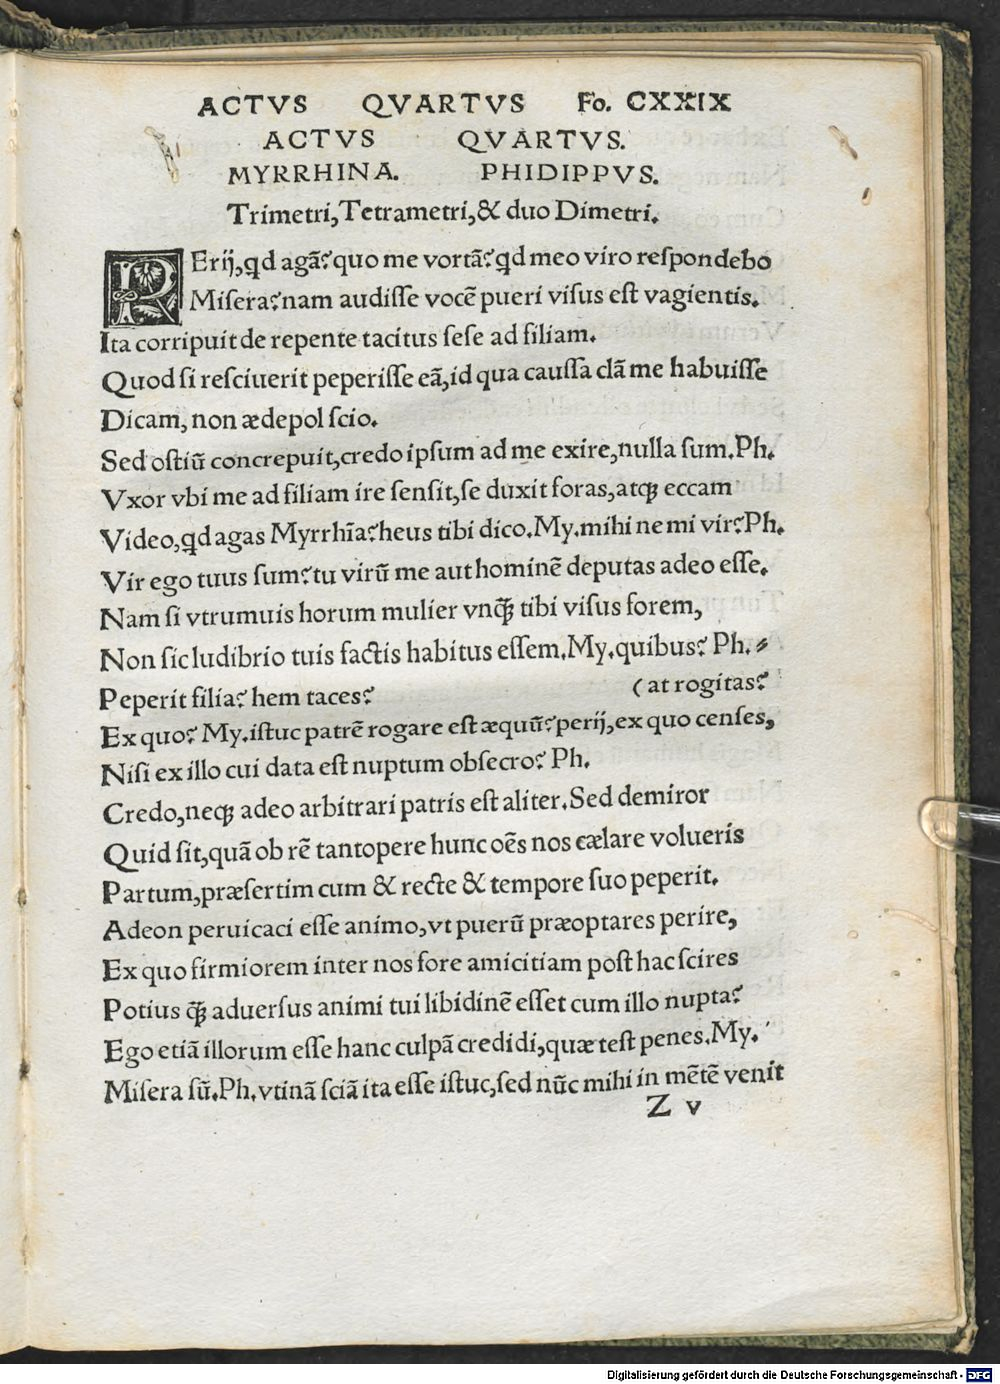 ACTVS QVARTVS Fo. CXXIX
ACTVS QVARTVS.
MYRRHINA. PHIDIPPVS.
Trimetri, Tetrametri, & duo Dimetri.
PErij, qd agã? quo me vortã? qd meo viro reſpondebo
Miſera? nam audiſſe vocẽ pueri viſus eſt vagientis.
Ita corripuit de repente tacitus ſeſe ad filiam.
Quod ſi reſciuerit peperiſſe eã, id qua cauſſa clã me habuiſſe
Dicam, non ædepol ſcio.
Sed oſtiũ concrepuit, credo ipſum ad me exire, nulla ſum. Ph.
Vxor vbi me ad filiam ire ſenſit, ſe duxit foras, atq; eccam
Video, qd agas Myrrhĩa? heus tibi dico. My. mihi ne mi vir? Ph.
Vir ego tuus ſum? tu virũ me aut hominẽ deputas adeo eſſe.
Nam ſi vtrumuis horum mulier vnq̃ tibi viſus forem,
Non ſic ludibrio tuis factis habitus eſſem. My. quibus? Ph.
Peperit filia? hem taces? (at rogitas?
Ex quo? My. iſtuc patrẽ rogare eſt æquũ? perij, ex quo cenſes,
Niſi ex illo cui data eſt nuptum obſecro? Ph.
Credo, neq; adeo arbitrari patris eſt aliter. Sed demiror
Quid ſit, quã ob rẽ tantopere hunc oẽs nos cælare volueris
Partum, præſertim cum & recte & tempore ſuo peperit.
Adeon peruicaci eſſe animo, vt puerũ præoptares perire,
Ex quo firmiorem inter nos fore amicitiam poſt hac ſcires
Potius q̃ aduerſus animi tui libidinẽ eſſet cum illo nupta?
Ego etiã illorum eſſe hanc culpã credidi, quæ teſt penes. My.
Miſera ſũ. Ph. vtinã ſciã ita eſſe iſtuc, ſed nũc mihi in mẽtẽ venit
Z v
Digitalisierung gefördert durch die Deutsche Forschungsgemeinschaft - DFG